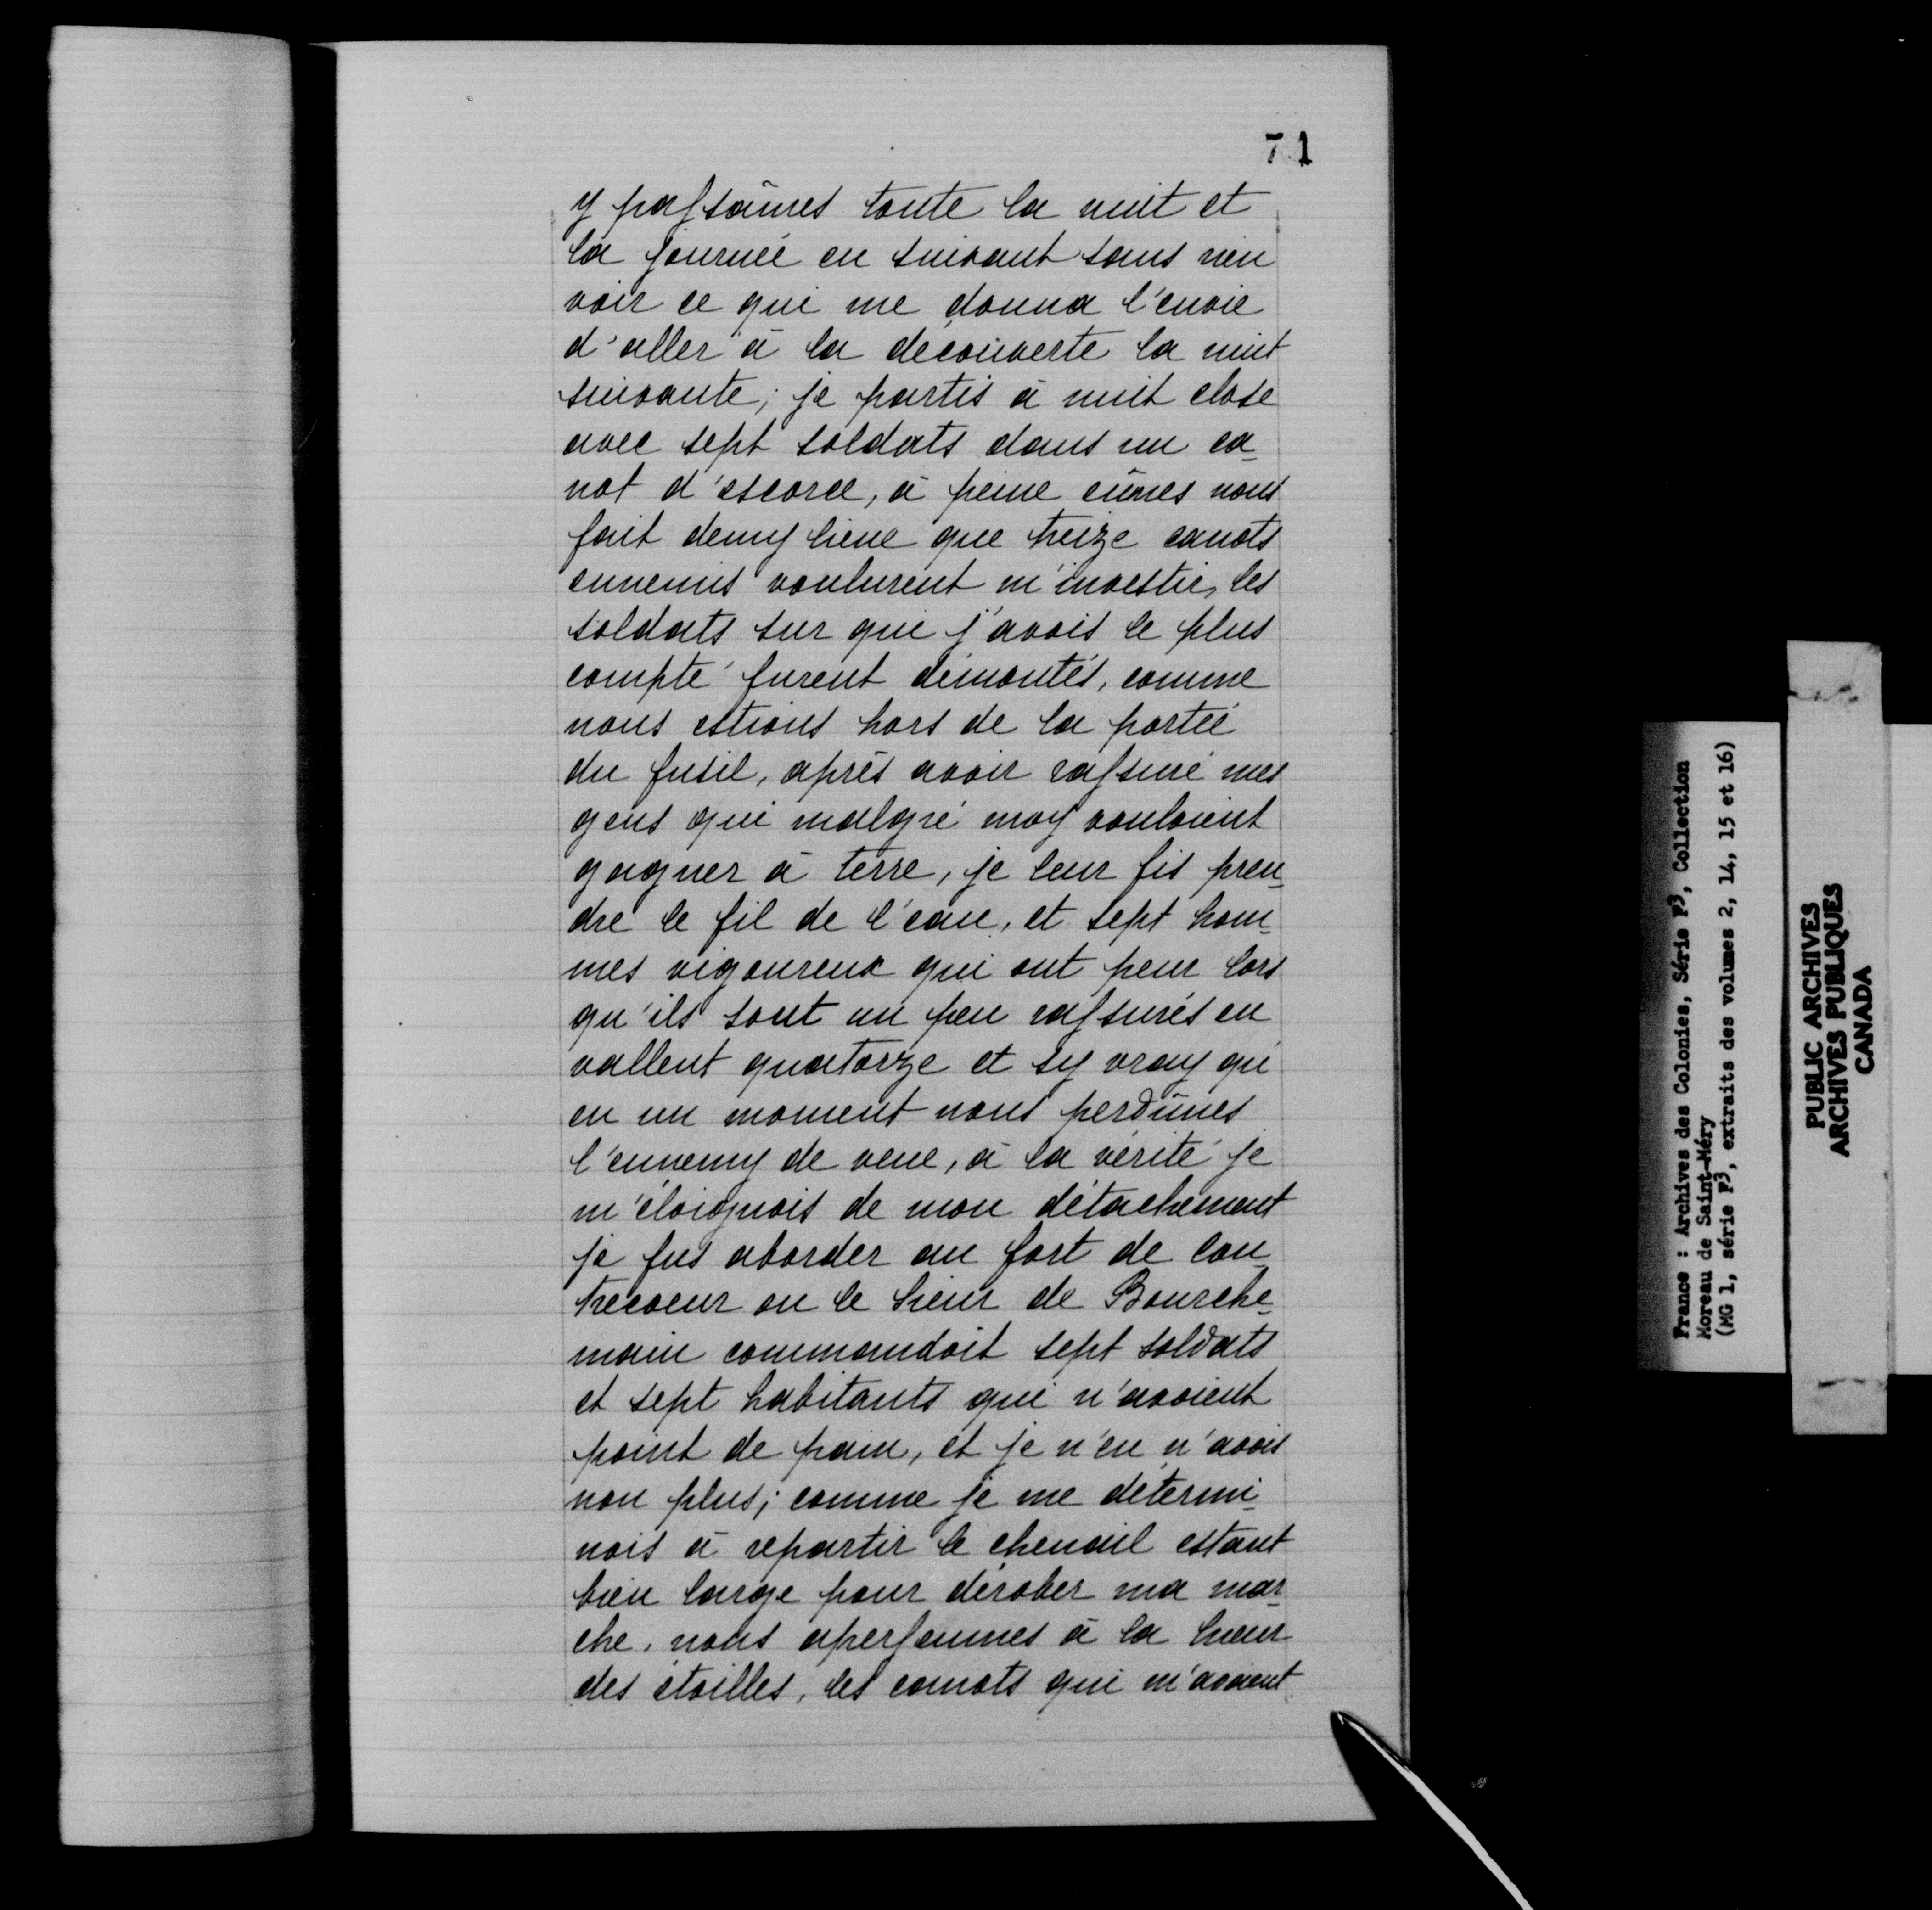 71
y passâmes toute la nuit et
la journée en suivant sans rien
voir ce qui me donna l'envie
d'aller à la découverte la nuit
suivante; je partis à nuit close
avec sept soldats dans un ca-
not d'escorce, à peine eûmes nous
fait demy lieue que treize canots
ennemis voulurent m'investir, les
soldats sur qui j'avois le plus
compté furent démontés, comme
nous estions hors de la portée
du fusil, après avoir rassuré mes
gens qui malgré moy vouloient
gagner à terre, je leur fis pren-
dre le fil de l'eau, et sept hom-
mes vigoureux qui ont peur lors
qu'ils sont un peu rassurés en
vallent quatorze et sy vray qu'
en un moment nous perdûmes
l'ennemy de veue, à la vérité je
m'éloignois de mon détachement
je fus aborder au fort de Con-
trecoeur ou le Sieur de Bourche-
main commandoit sept soldats
et sept habitants qui n'avoient
point de pain, et je n'en n'avois
non plus; comme je me détermi-
nois à repartir le chenail estant
bien large pour dérober ma mar-
che, nous aperseumes à la lueur
des étoilles, les canots qui m'avoient
France : Archives des Colonies, Série F³, Collection
Moreau de Saint-Méry
(MG 1, série F³, extraits des volumes 2, 14, 15 et 16)
PUBLIC ARCHIVES
ARCHIVES PUBLIQUES
CANADA